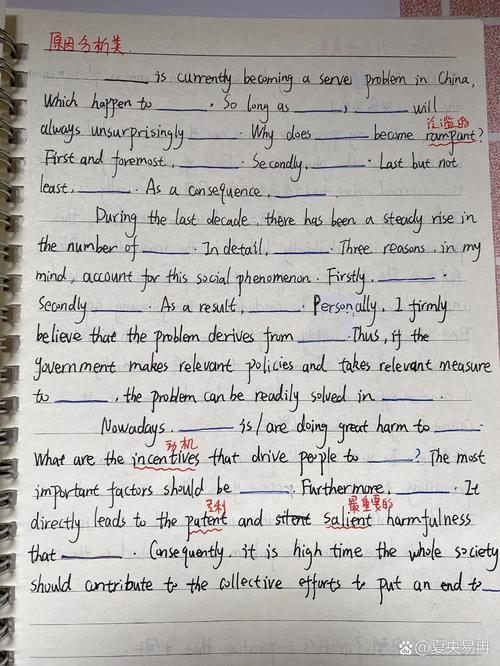 原因分析类.
______ is currently becoming a server problem in China,
Which happen to ______. So long as ______, ______ will
泛滥的
always unsurprisingly ______. Why does ______ become rampant?
First and foremost, ______. Secondly, ______. Last but not
least, ______. As a consequence, ______.
During the last decade, there has been a steady rise in
the number of ______. In detail, ______. Three reasons, in my
mind, account for this social phenomenon. Firstly, ______.
Secondly ______. As a result, ______. Personally, I firmly
believe that the problem derives from ______. Thus, if the
government makes relevant policies and takes relevant measure
to ______, the problem can be readily solved in ______.
Nowadays, ______ is/are doing great harm to ______.
动机
What are the incentives that drive people to ______? The most
important factors should be ______. Furthermore, ______. It
专利 最重要的
directly leads to the patent and silent salient harmfulness
that ______. Consequently, it is high time the whole society
should contribute to the collective efforts to put an end to ______
Bai百度 @夏央易冉